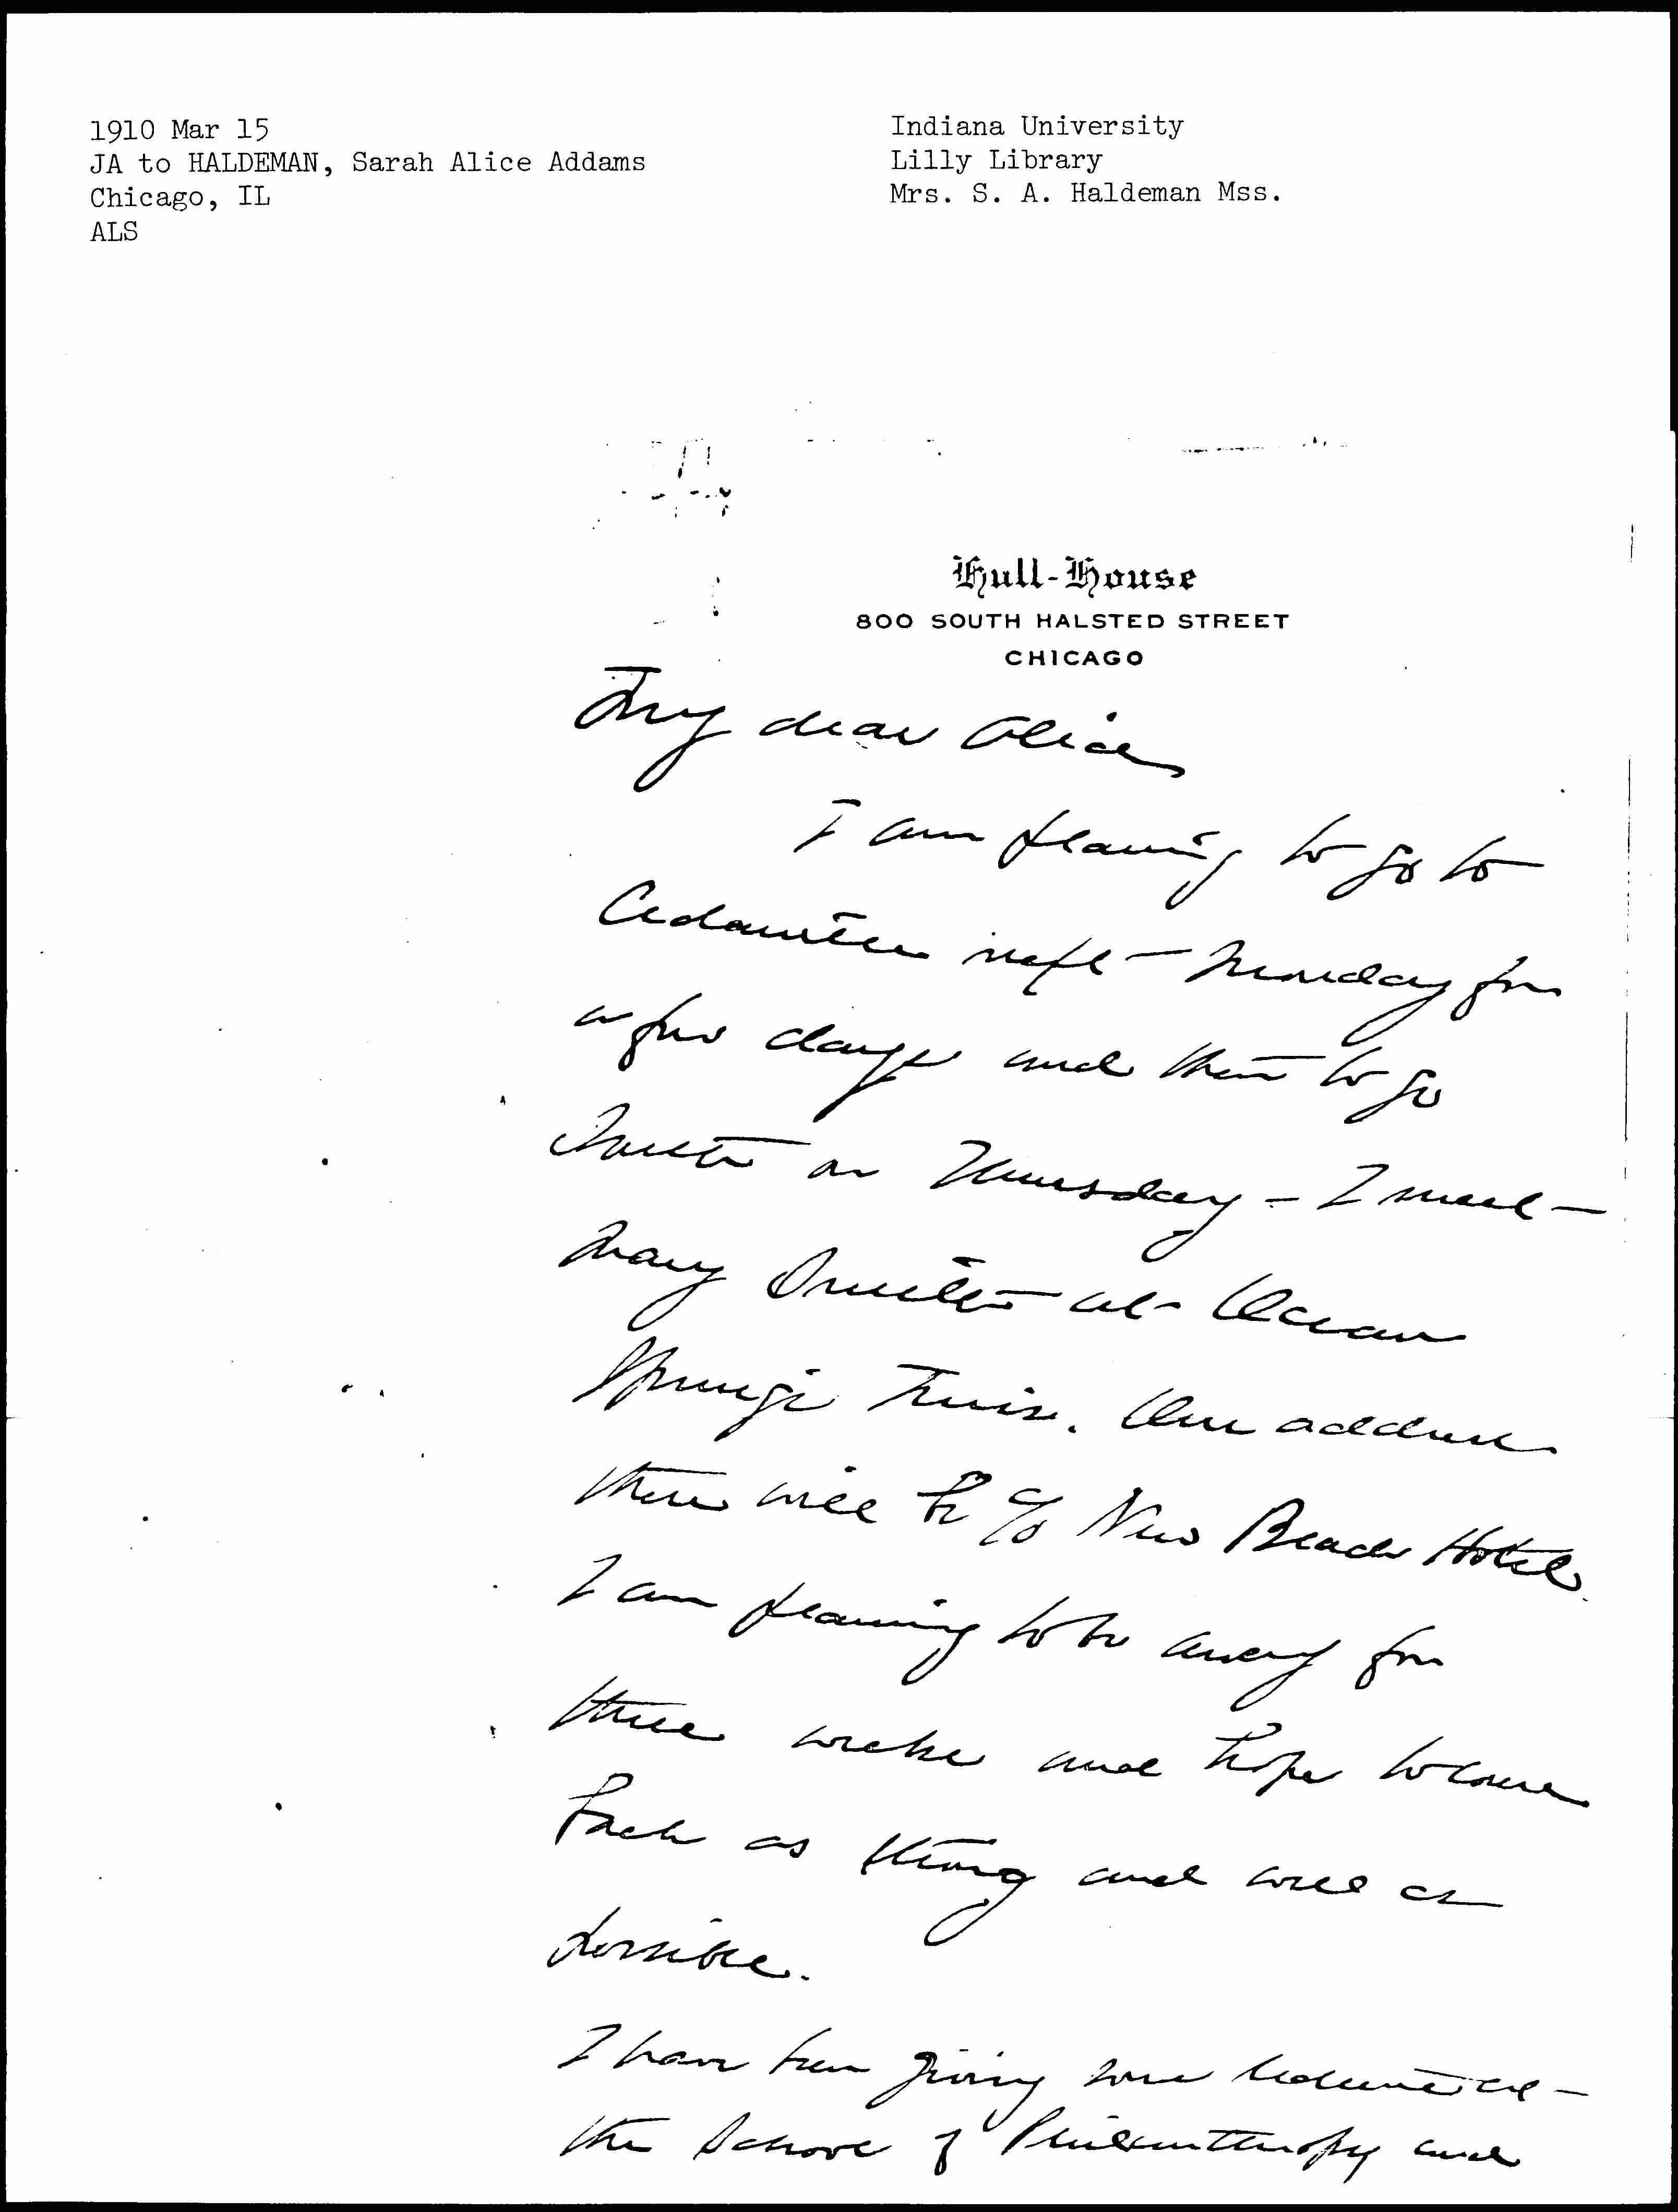 1910 Mar 15
JA to HALDEMAN, Sarah Alice Addams
Chicago, IL
ALS
Indiana University
Lilly Library
Mrs. S. A. Haldeman Mss.
Hull-House
800 SOUTH HALSTED STREET
CHICAGO
My dear Alice
I am planning to go to
Cedarville next Monday for
a few days and then to go
South on Thursday - I meet
Mary Smith at Ocean
Springs Miss. Our address
there will be c/o New Beach Hotel.
I am planning to be away for
three weeks and hope to come
back as strong and well as
possible.
I have been giving some lectures at
the School of Philanthropy and